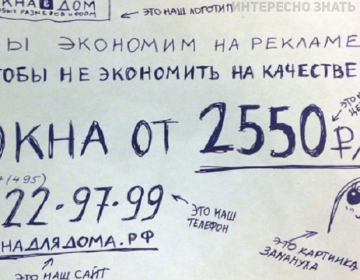 КНА В ДОМ
ЭТО НАШ ЛОГОТИП
ИНТЕРЕСНО ЗНАТЬ
Ы ЭКОНОМИМ НА РЕКЛАМЕ
ТОБЫ НЕ ЭКОНОМИТЬ НА КАЧЕСТВЕ
ОКНА ОТ 2550₽/
(495)
22-97-99
ЭТО НАШ
ТЕЛЕФОН
НАДЛЯДОМА.РФ
ЭТО НАШ САЙТ
ЭТО КАРТИНКА
ЗАМАНУЛА